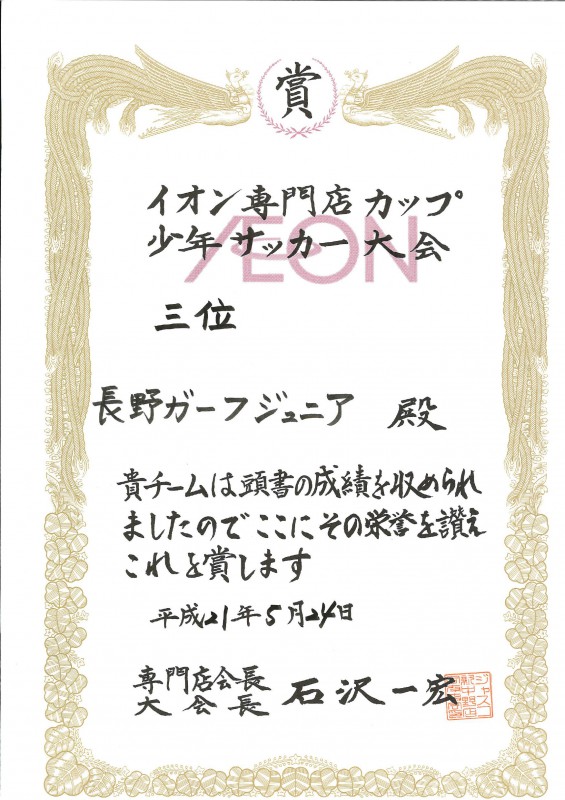 賞
イオン専門店カップ
少年サッカー大会
AEON
三位
長野ガーフジュニア 殿
貴チームは頭書の成績を収められ
ましたのでここにその栄誉を讃え
これを賞します
平成21年5月24日
専門店会長
大会長 石沢一宏